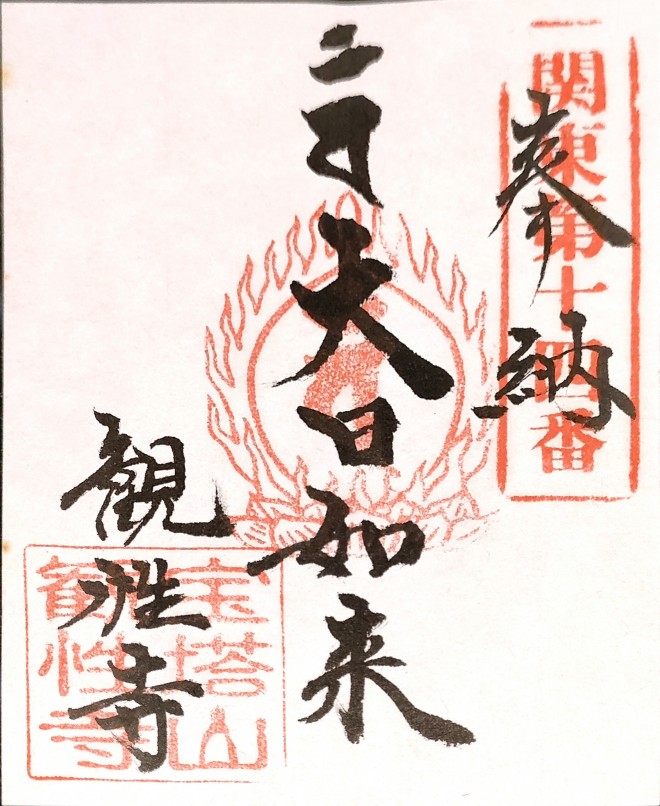 関東第十四番
奉納
大日如来
観性寺
宝塔山
観性寺